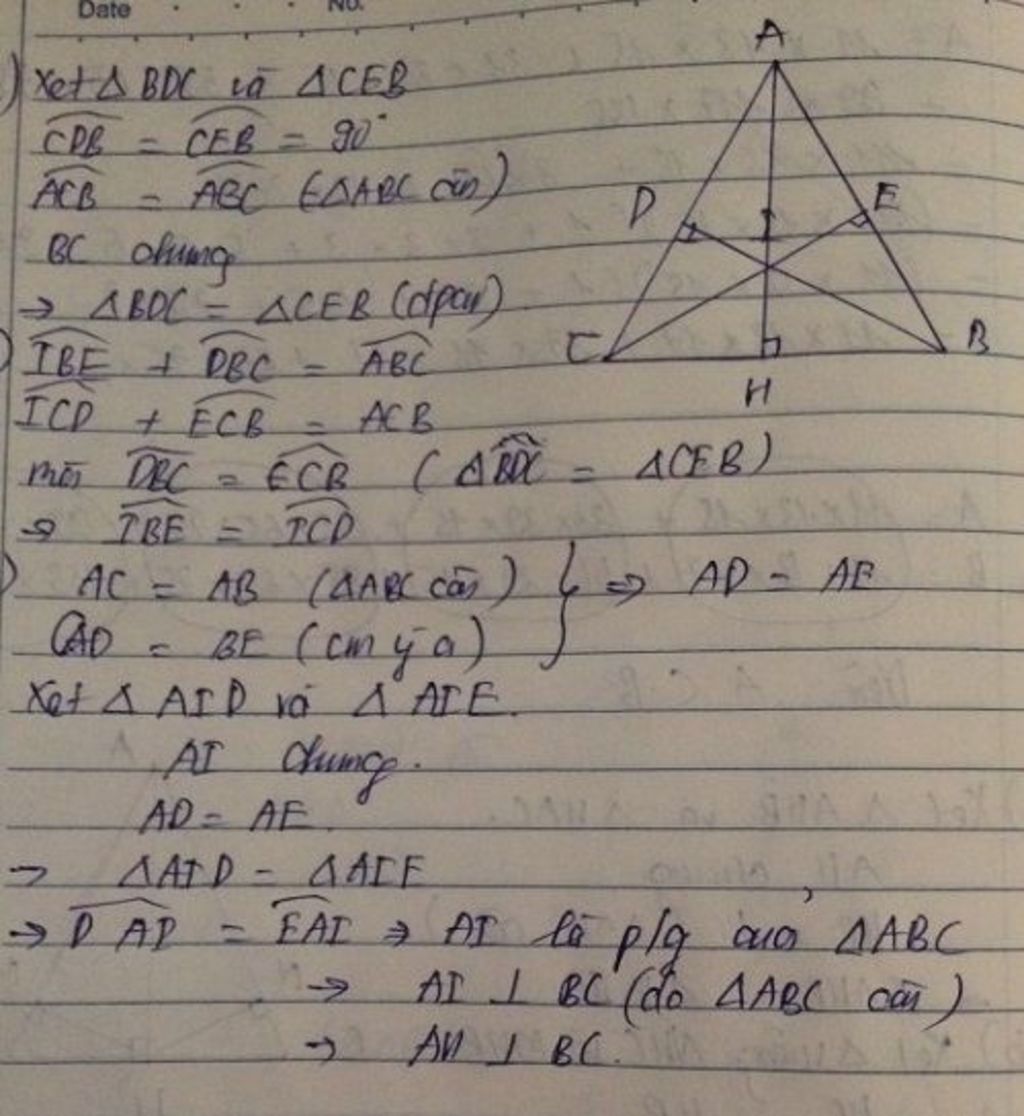 Date No.
) Xét Δ BDC và Δ CEB
CDB = CEB = 90°
ACB = ABC (ΔABC cân)
BC chung
→ ΔBDC = ΔCEB (đpcm)
) IBE + DBC = ABC
ICD + ECB = ACB
mà DBC = ECB (ΔBDC = ΔCEB)
→ IBE = ICD
) AC = AB (ΔABC cân) } => AD = AE
CD = BE (cm ý a)
Xét Δ AID và Δ AIE.
AI chung.
AD = AE.
→ ΔAID = ΔAIE
→ DAI = EAI → AI là p/g của ΔABC
→ AI ⊥ BC (do ΔABC cân)
→ AH ⊥ BC.
A
D
E
I
C
B
H